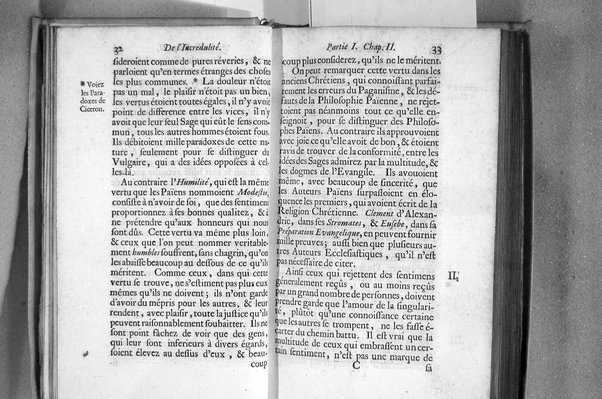 32 De l'Incredulité.
sideroient comme de pures réveries, & ne
parloient qu'en termes étranges des choses
les plus communes. * La douleur n'étoit
pas un mal, le plaisir n'étoit pas un bien,
les vertus étoient toutes égales, il n'y avoit
point de difference entre les vices, il n'y
avoit que leur seul Sage qui eût le sens com-
mun, tous les autres hommes étoient fous.
Ils débitoient mille paradoxes de cette na-
ture, seulement pour se distinguer du
Vulgaire, qui a des idées opposées à cel-
les-là.
* Voiez
les Para-
doxes de
Ciceron.
Au contraire l'Humilité, qui est la même
vertu que les Païens nommoient Modestie,
consiste à n'avoir de soi, que des sentimens
proportionnez à ses bonnes qualitez, & à
ne prétendre qu'aux honneurs qui nous
sont dûs. Cette vertu va même plus loin,
& ceux que l'on peut nommer veritable-
ment humbles souffrent, sans chagrin, qu'on
les abaisse beaucoup au dessous de ce qu'ils
méritent. Comme ceux, dans qui cette
vertu se trouve, ne s'estiment pas plus eux-
mêmes qu'ils ne doivent; ils n'ont garde
d'avoir du mépris pour les autres, & leur
rendent, avec plaisir, toute la justice qu'ils
peuvent raisonnablement souhaitter. Ils ne
sont point fâchez de voir que des gens,
qui leur sont inferieurs à divers égards,
soient élevez au dessus d'eux, & beau-
coup
Partie I. Chap. II. 33
coup plus considerez, qu'ils ne le méritent.
On peut remarquer cette vertu dans les
anciens Chrétiens, qui connoissant parfai-
tement les erreurs du Paganisme, & les dé-
fauts de la Philosophie Païenne, ne rejet-
toient pas néanmoins tout ce qu'elle en-
seignoit, pour se distinguer des Philoso-
phes Païens. Au contraire ils approuvoient
avec joie ce qu'elle avoit de bon, & étoient
ravis de trouver de la conformité, entre les
idées des Sages admirez par la multitude, &
les dogmes de l'Evangile. Ils avouoient
même, avec beaucoup de sincerité, que
les Auteurs Païens surpassoient en élo-
quence les premiers, qui avoient écrit de la
Religion Chrétienne. Clement d'Alexan-
drie, dans ses Stromates, & Eusebe, dans sa
Préparation Evangelique, en peuvent fournir
mille preuves; aussi bien que plusieurs au-
tres Auteurs Ecclesiastiques, qu'il n'est
pas nécessaire de citer.
Ainsi ceux qui rejettent des sentimens
II.
généralement reçus, ou au moins reçus
par un grand nombre de personnes, doivent
prendre garde que l'amour de la singulari-
té, plûtôt qu'une connoissance certaine
que les autres se trompent, ne les fasse é-
carter du chemin battu. Il est vrai que la
multitude de ceux qui embrassent un cer-
tain sentiment, n'est pas une marque de
C sa